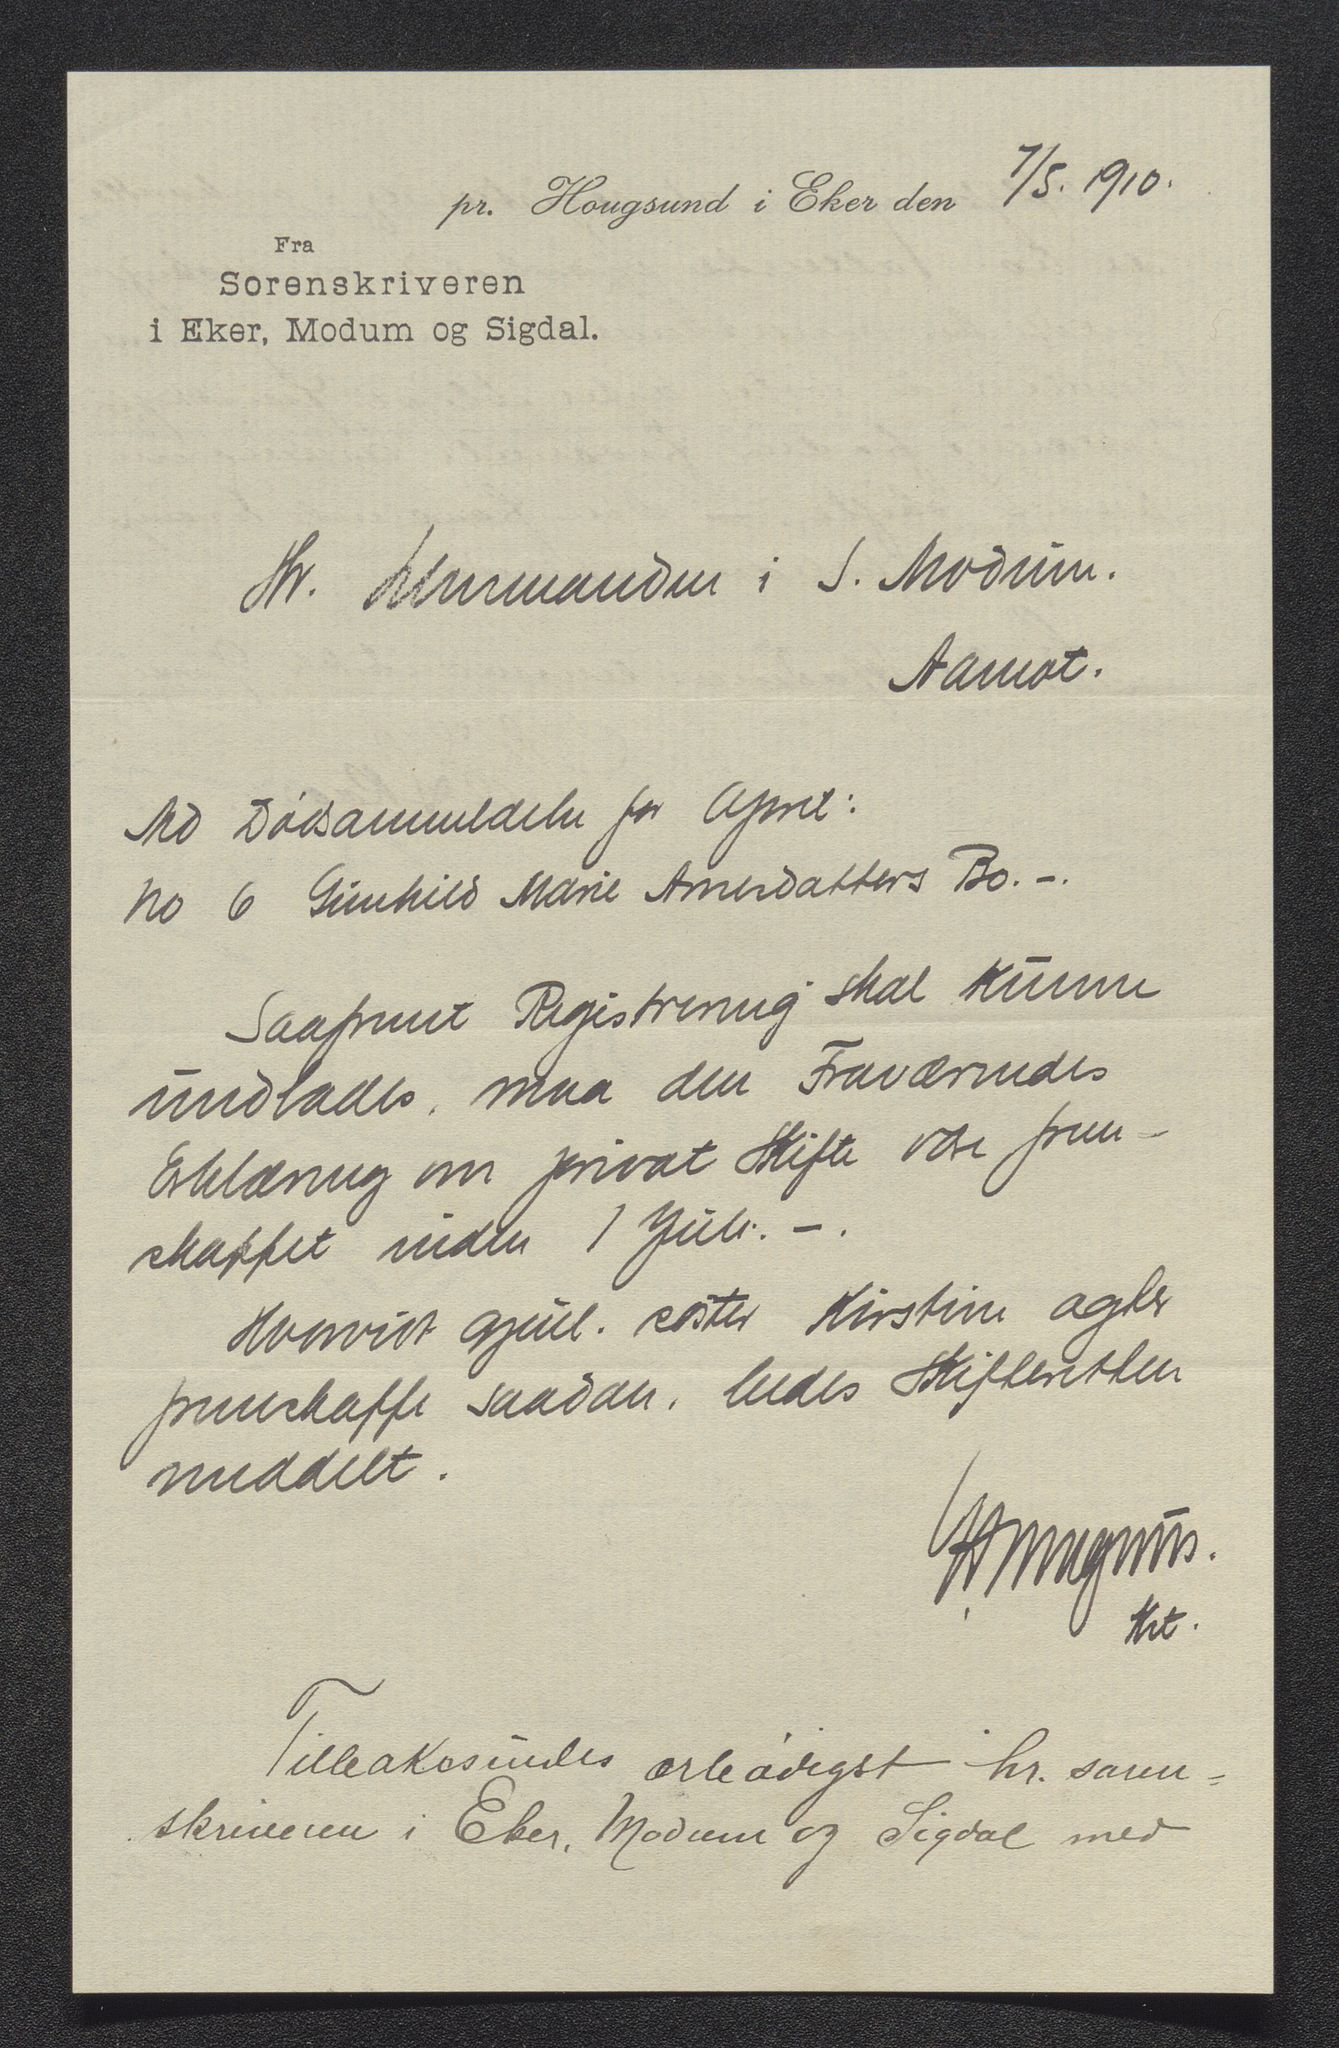 pr. Hougsund i Eker den 7/5. 1910.
Fra
Sorenskriveren
i Eker, Modum og Sigdal.
Hr. Lensmanden i S. Modum.
Aamot.
Ad Dødsanmeldelse for April:
No 6 Gunhild Marie Arnesdatters Bo. -.
Saafremt Registrering skal kunne
undlades, maa den Fraværendes
Erklæring om privat Skifte være frem-
skaffet inden 1 Juli. -.
Hvorvidt gjenl. søster Kirstine agter
fremskaffe saadan, bedes Skifteretten
meddelt.
Magnus.
Kst.
Tilbakesendes ærbødigst hr. soren-
skriveren i Eker, Modum og Sigdal med